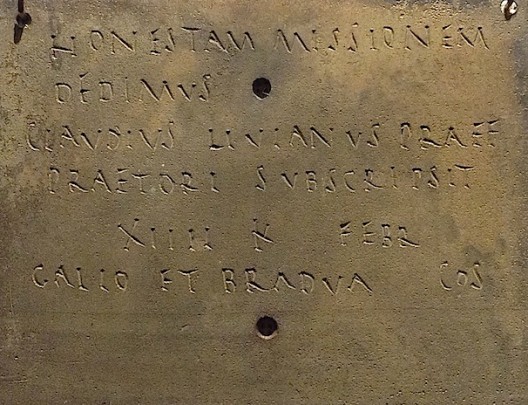 HONESTAM MISSIONEM
DEDIMVS
CLAVDIVS LIVIANVS PRAEF
PRAETORI SVBSCRIPSIT
XIIII K FEBR
GALLO ET BRADVA COS